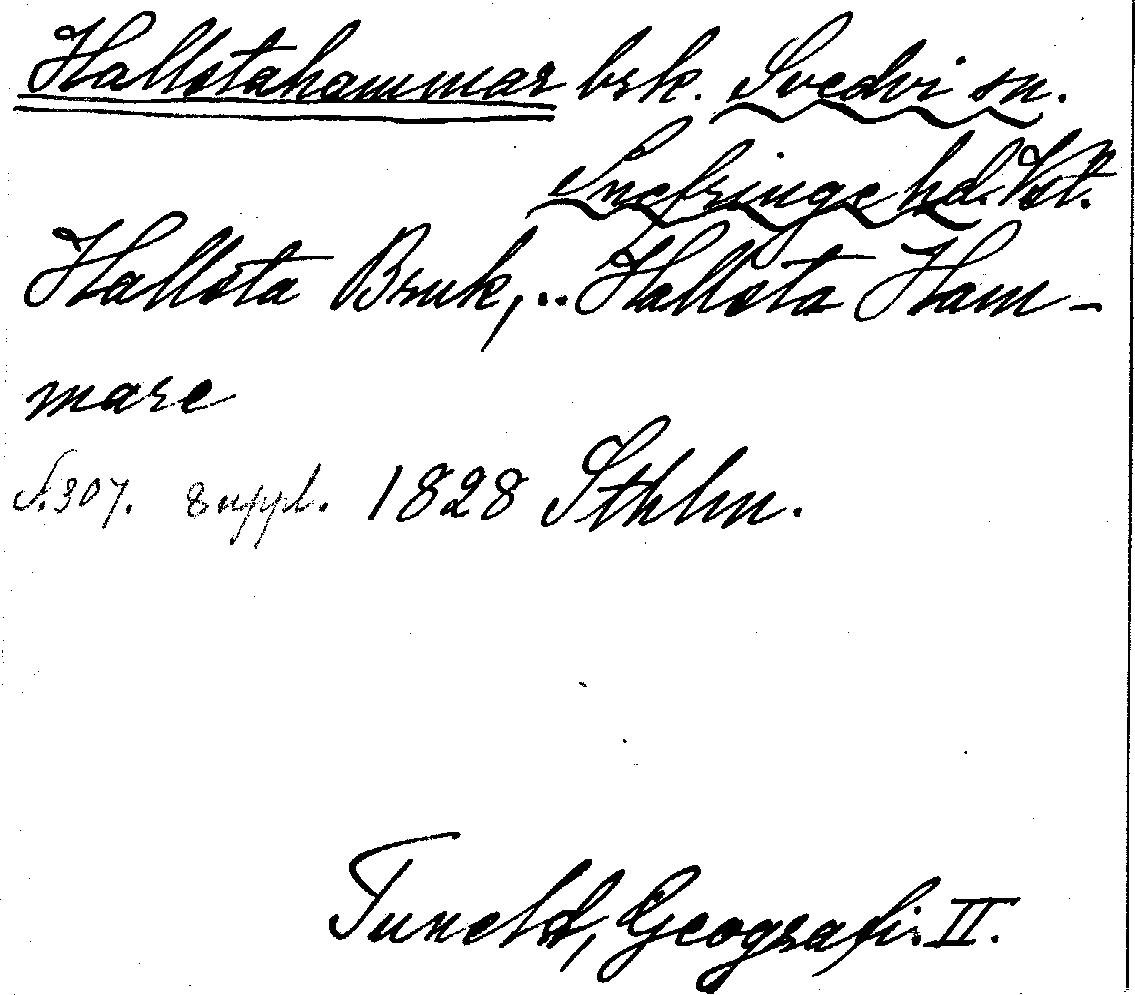 Hallstahammar brk. Svedvi sn.
Snefringe hd. Vstl.
Hallsta Bruk, .. Hallsta Ham-
mare
S. 307. Suppl. 1828 Sthlm.
Tuneld, Geografi. II.